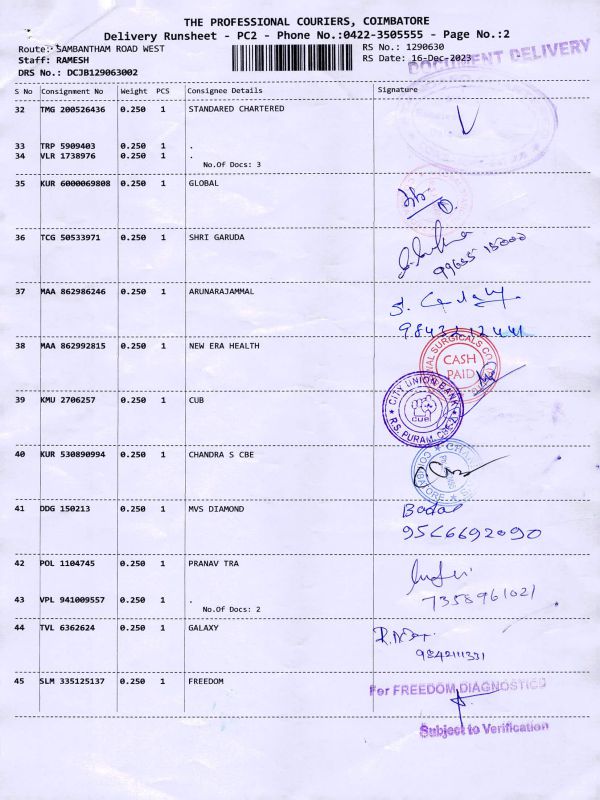 THE PROFESSIONAL COURIERS, COIMBATORE
Delivery Runsheet - PC2 - Phone No.:0422-3505555 - Page No.:2
Route: SAMBANTHAM ROAD WEST RS No.: 1290630
Staff: RAMESH RS Date: 16-Dec-2023
DOCUMENT DELIVERY
DRS No.: DCJB129063002
S No Consignment No Weight PCS Consignee Details Signature
32 TMG 200526436 0.250 1 STANDARED CHARTERED
33 TRP 5909403 0.250 1 .
34 VLR 1738976 0.250 1 .
No.Of Docs: 3
35 KUR 6000069808 0.250 1 GLOBAL
36 TCG 50533971 0.250 1 SHRI GARUDA
99655 15000
37 MAA 862986246 0.250 1 ARUNARAJAMMAL
38 MAA 862992815 0.250 1 NEW ERA HEALTH
SURGICALS CO
CASH
PAID
39 KMU 2706257 0.250 1 CUB
CITY UNION BANK
CUB
R.S. PURAM, CBE-2
40 KUR 530890994 0.250 1 CHANDRA S CBE
COIMBATORE
41 DDG 150213 0.250 1 MVS DIAMOND
Badal
9566692090
42 POL 1104745 0.250 1 PRANAV TRA
43 VPL 941009557 0.250 1 .
7358961021
No.Of Docs: 2
44 TVL 6362624 0.250 1 GALAXY
9842111331
45 SLM 335125137 0.250 1 FREEDOM
For FREEDOM DIAGNOSTICS
Subject to Verification